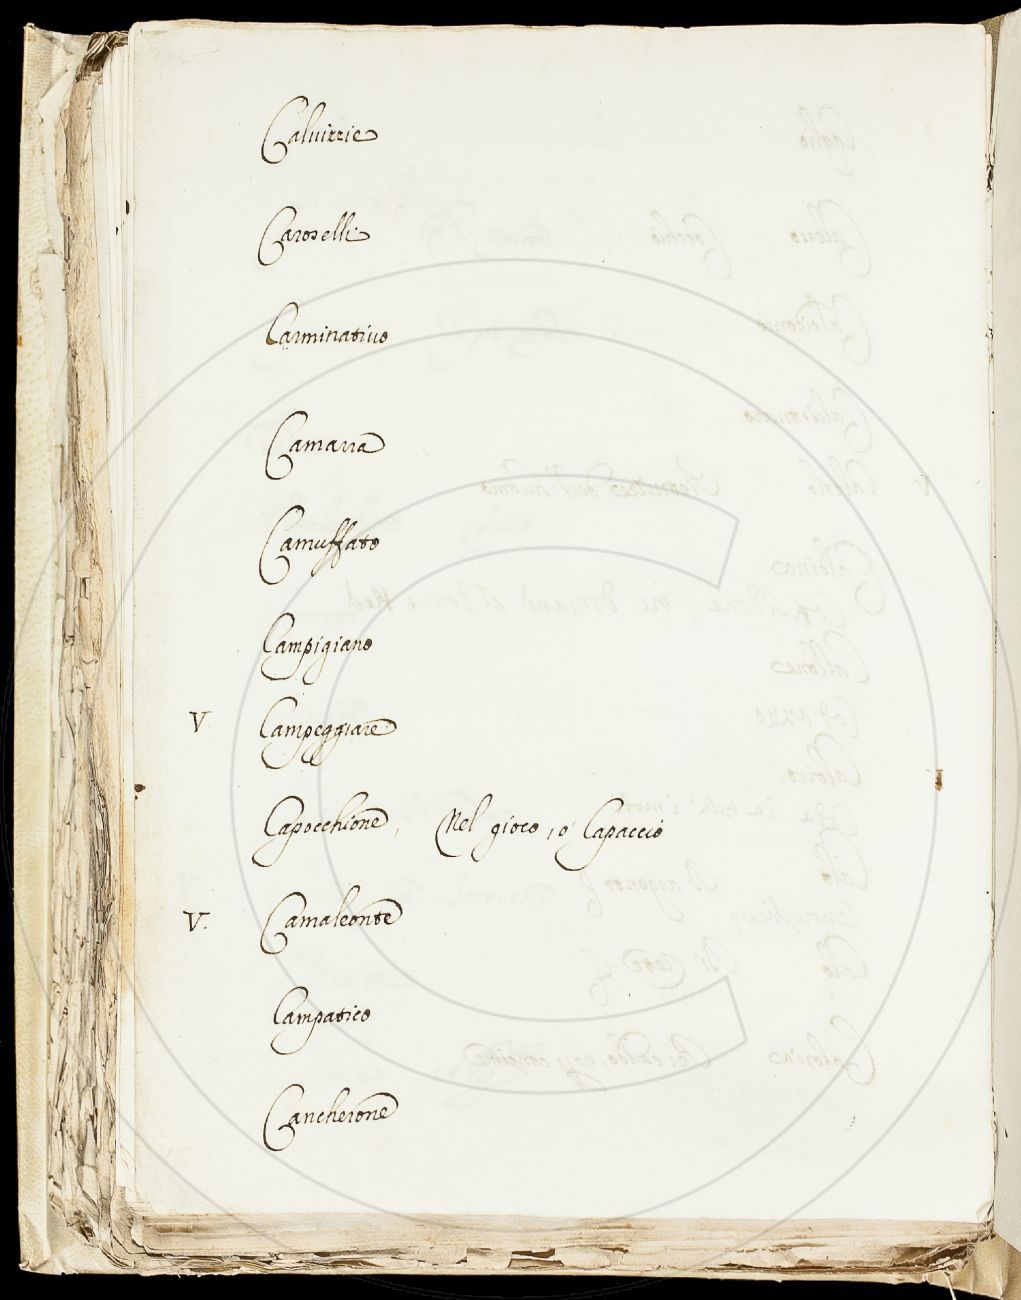 Caluizzie
Caroselli
Carminatiuo
Camarra
Camuffato
Campigiano
V Campeggiare
Capocchione, Nel gioco, o Capaccio
V. Camaleonte
Campatico
Cancherone